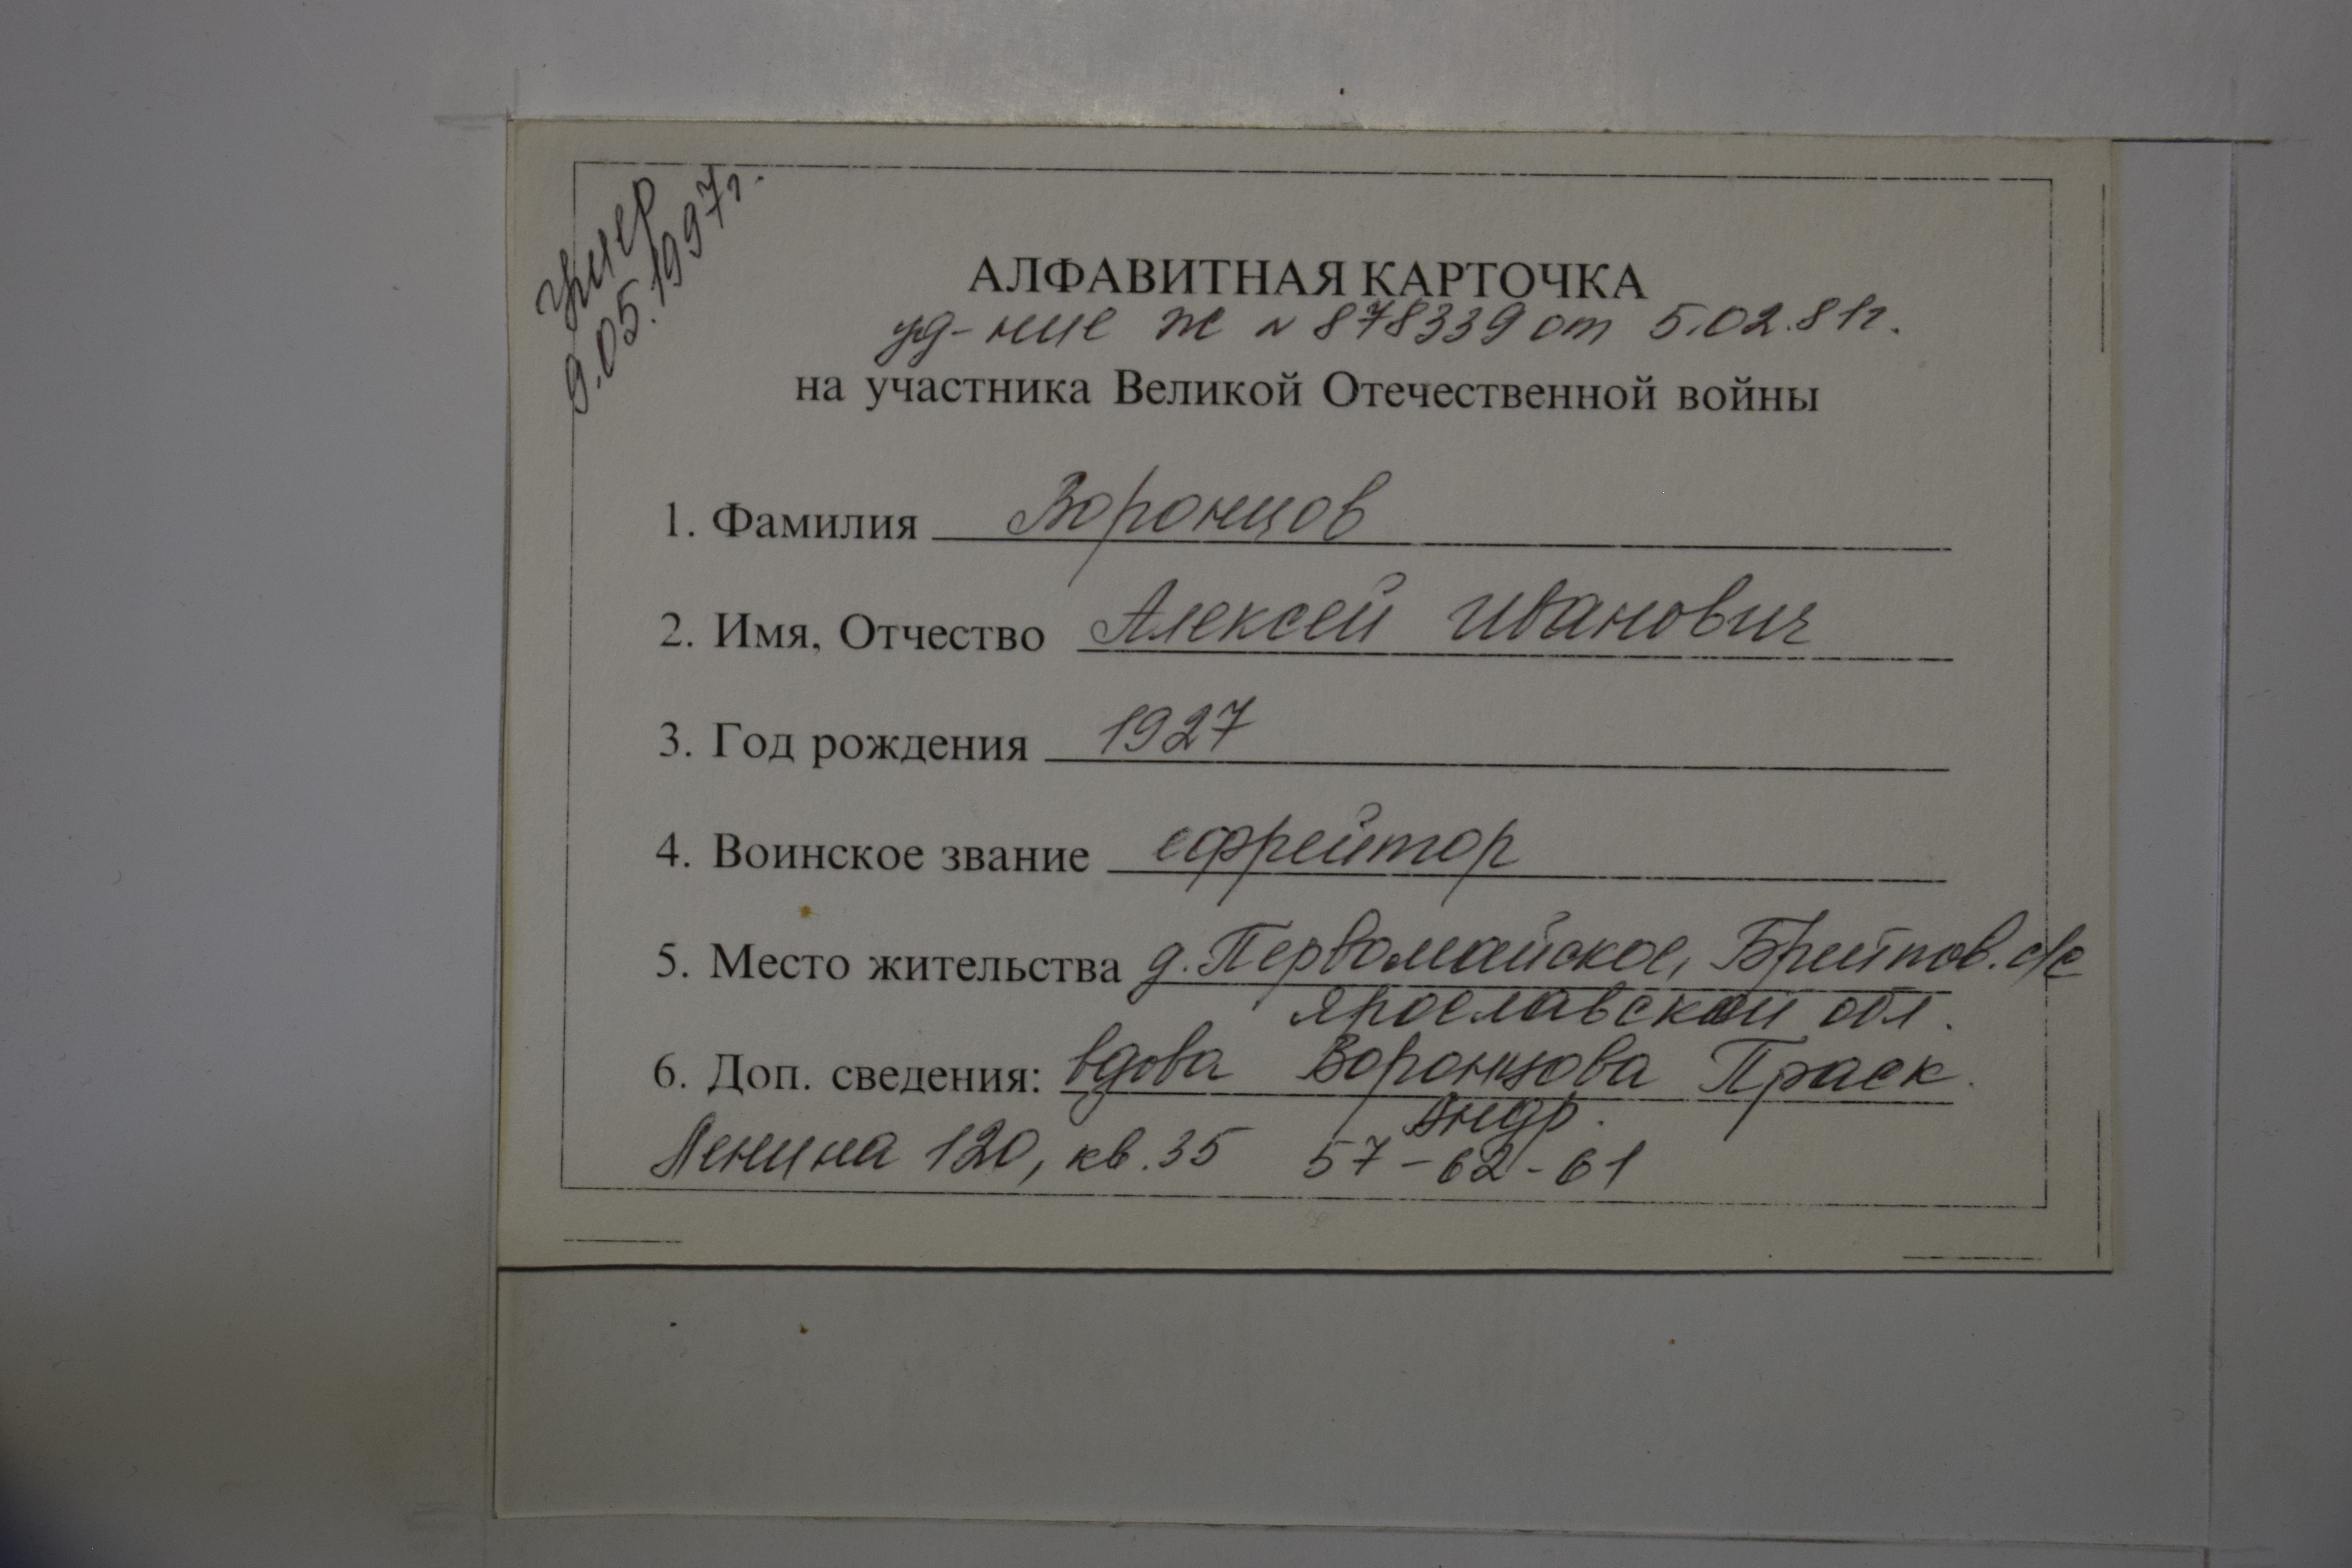 умер
9.05.1997г.
АЛФАВИТНАЯ КАРТОЧКА
уд-ние Ж № 878339 от 5.02.81г.
на участника Великой Отечественной войны
1. Фамилия Воронцов
2. Имя, Отчество Алексей Иванович
3. Год рождения 1927
4. Воинское звание ефрейтор
5. Место жительства д. Первомайское, Брейтов. с/с
Ярославской обл.
6. Доп. сведения: вдова Воронцова Праск.
Андр.
Ленина 120, кв. 35 57-62-61